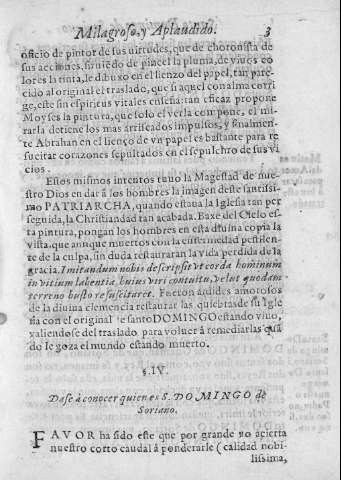 Milagroso, y Aplaudido. 3
oficio de pintor de sus uirtudes, que de choronista de
sus acciones, siruiẽdo de pincel la pluma, de viuos co
lores la tinta, le dibuxo en el lienzo del papel, tan pare
cido al original el traslado, que si aquel con alma corri
ge, este sin espiritus vitales enseña: tan eficaz propone
Moyses la pintura, que solo el verla compone, el mi-
rarla detiene los mas arriscados impulsos, y finalmen-
te Abrahan en el lienço de vn papel es bastante para re
sucitar corazones sepultados en el sepulchro de sus vi
cios.
Essos mismos intentos tuuo la Magestad de nue-
stro Dios en dar à los hombres la imagen deste santissi-
mo PATRIARCHA, quando estaua la Iglesia tan per
seguida, la Christiandad tan acabada. Baxe del Cielo es-
ta pintura, pongan los hombres en esta diuina copia la
vista, que aunque muertos con la enfermedad pestilen-
te de la culpa, sin duda restauraran la vida perdida de la
gracia. Imitandum nobis descripsit vt corda hominum
in vitium labentia, huius viri contuitu, velut quodam
terreno busto resuscitaret. Fueron ardides amorosos
de la diuina clemencia restaurar las quiebras de su Igle
sia con el original de santo DOMINGO estando viuo,
valiendose del traslado para voluer à remediarlas quã
do le goza el mundo estando muerto.
§. IV.
Dase à conocer quien es S. DOMINGO de
Soriano.
FAVOR ha sido este que por grande no acierta
nuestro corto caudal à ponderarle (calidad nobi-
lissima,